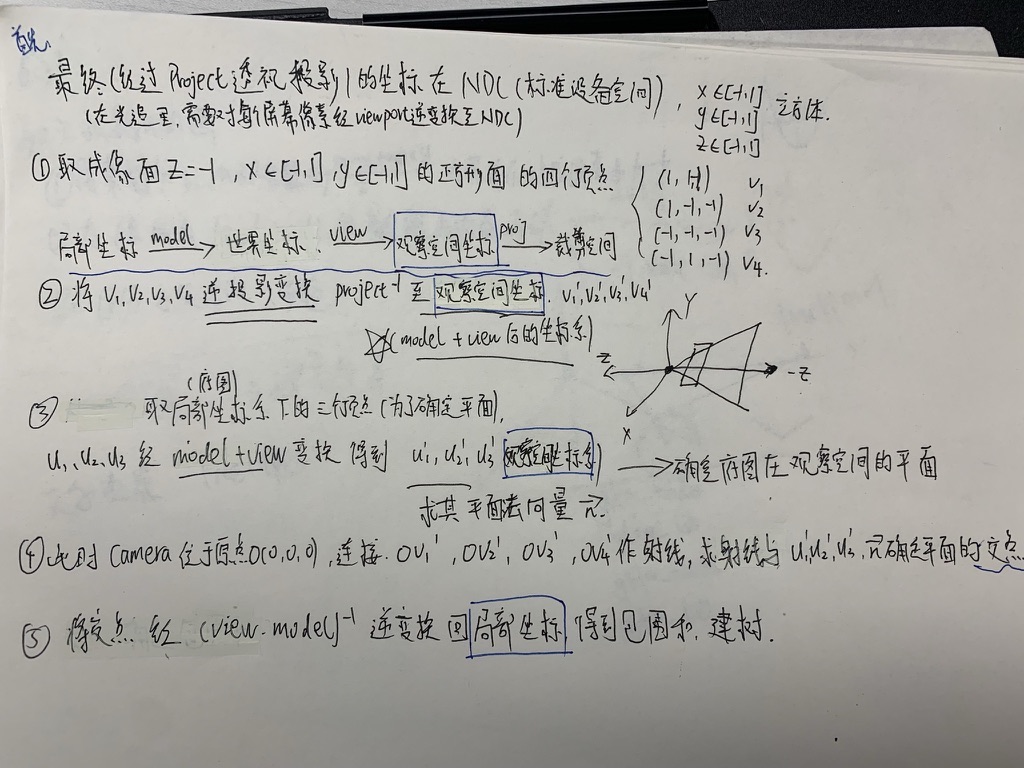 首先、
最终(经过Project透视投影)的坐标在NDC(标准设备空间), x∈[-1,1] y∈[-1,1] z∈[-1,1] 立方体.
(在光追里,需要对每个屏幕像素经viewport逆变换至NDC)
① 取成像面Z=-1, x∈[-1,1], y∈[-1,1]的正方形面的四个顶点
(1, 1, -1) V1
(1, -1, -1) V2
(-1, -1, -1) V3
(-1, 1, -1) V4.
局部坐标 model→ 世界坐标. view→ 观察空间坐标 proj→ 裁剪空间
② 将V1,V2,V3,V4 逆投影变换 project⁻¹ 至 观察空间坐标. V1',V2',V3',V4'
(model+view后的坐标系)
Y
Z
-Z
X
(底图)
③ 取局部坐标系下的三个顶点(为了确定平面),
U1,U2,U3 经 model+view 变换得到 U1',U2',U3' (观察空间坐标系) →确定底图在观察空间的平面
求其平面法向量n.
④ 此时Camera位于原点O(0,0,0),连接.OV1',OV2',OV3',OV4'作射线,求射线与U1'U2'U3',n确定平面的交点
⑤ 将交点经(view·model)⁻¹ 逆变换回局部坐标,得到包围和,建树.